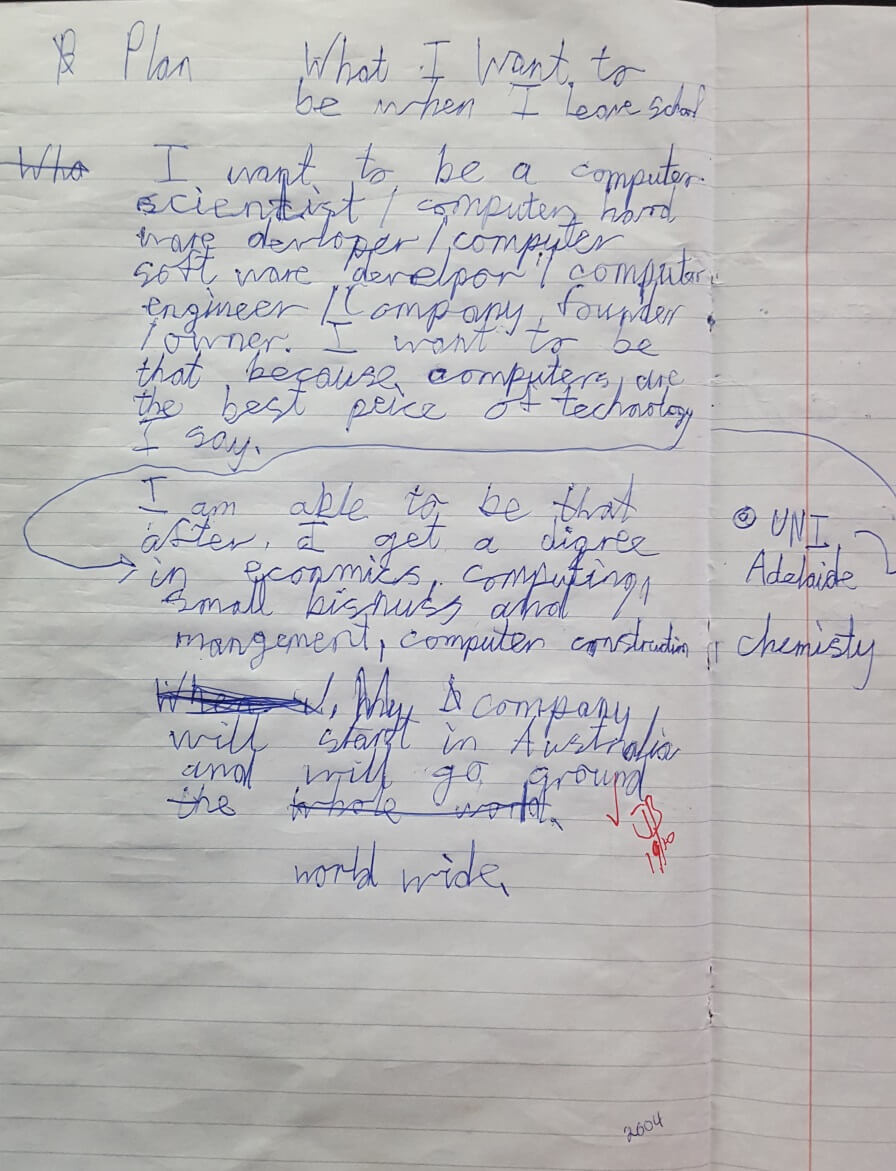 Plan What I Want to
be when I leave school
Who I want to be a computer
scientist / computer hard
ware devloper / computer
soft ware develpor / computer
engineer / Company founder
/ owner. I want to be
that because computers are
the best peice of technology
I say.
I am able to be that
after I get a digree
@ UNI
Adelaide
in econmics, computing,
small bisnuss and
mangement, computer construction, chemisty
My company
will start in Australia
and will go ground
the whole world.
JB
19/10
world wide.
2004